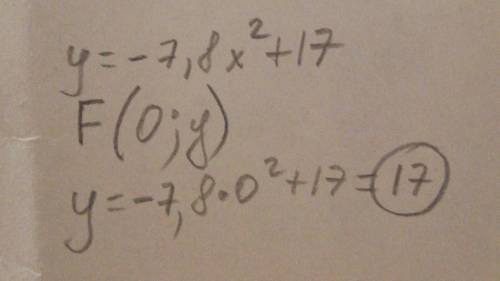 y=-7,8x²+17
F(0;y)
y=-7,8·0²+17=17